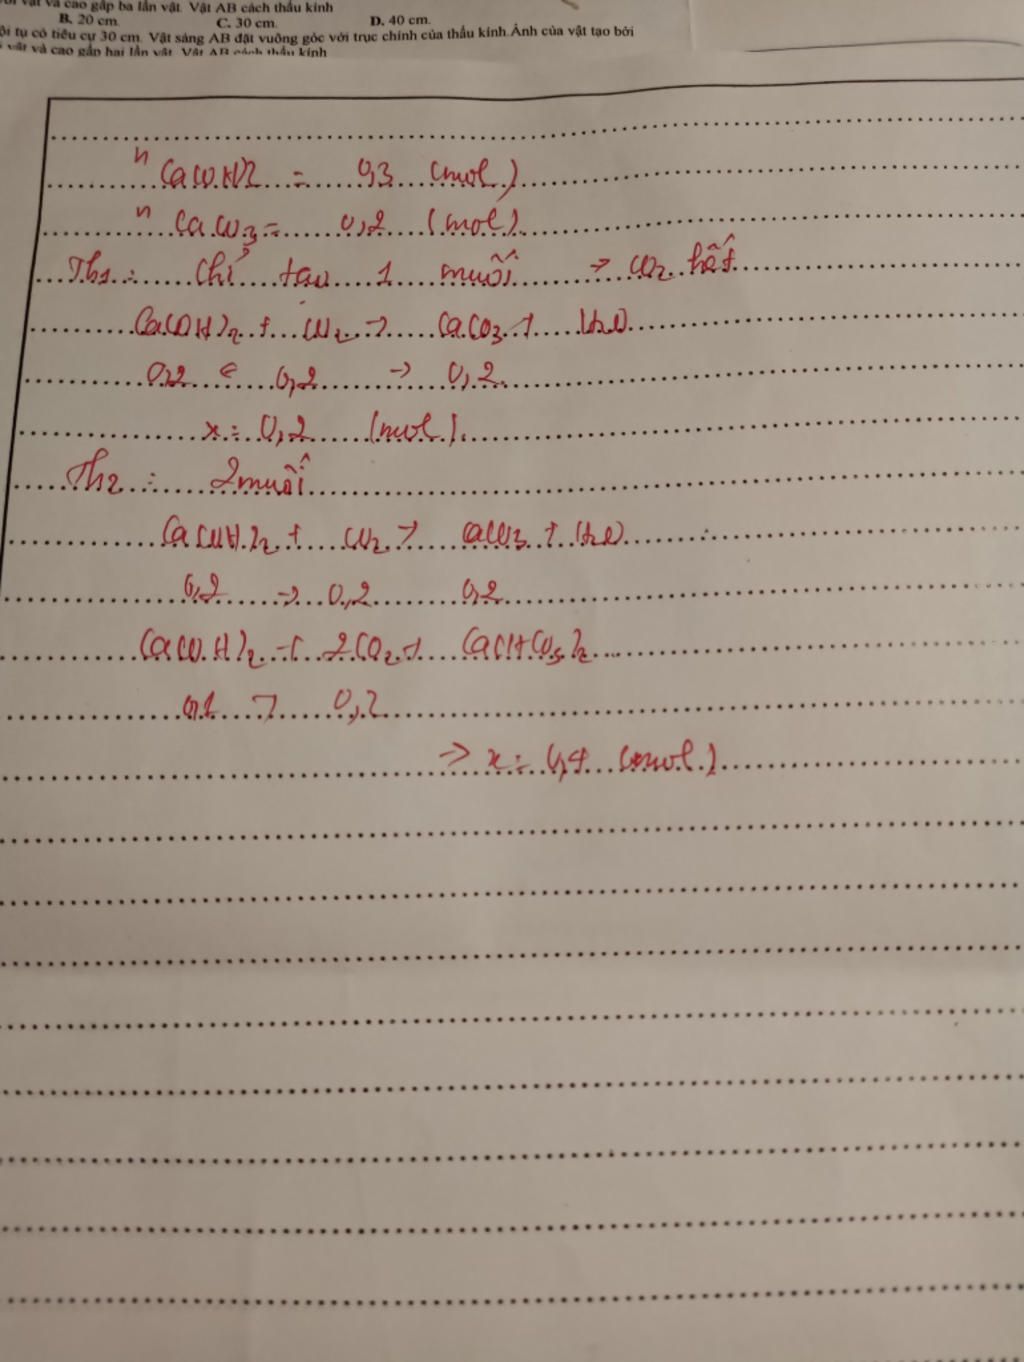 vật và cao gấp ba lần vật. Vật AB cách thấu kính
B. 20 cm. C. 30 cm. D. 40 cm.
ội tụ có tiêu cự 30 cm. Vật sáng AB đặt vuông góc với trục chính của thấu kính. Ảnh của vật tạo bởi
vật và cao gấp hai lần vật. Vật AB cách thấu kính
n Ca(OH)2 = 0,3 (mol)
n CaCO3 = 0,2 (mol)
Th1: Chỉ tạo 1 muối → CO2 hết
Ca(OH)2 + CO2 → CaCO3 + H2O
0,2 ← 0,2 → 0,2
x = 0,2 (mol).
Th2: 2 muối
Ca(OH)2 + CO2 → CaCO3 + H2O
0,2 → 0,2 0,2
Ca(OH)2 + 2CO2 → Ca(HCO3)2
0,1 → 0,2
→ x = 0,4 (mol)